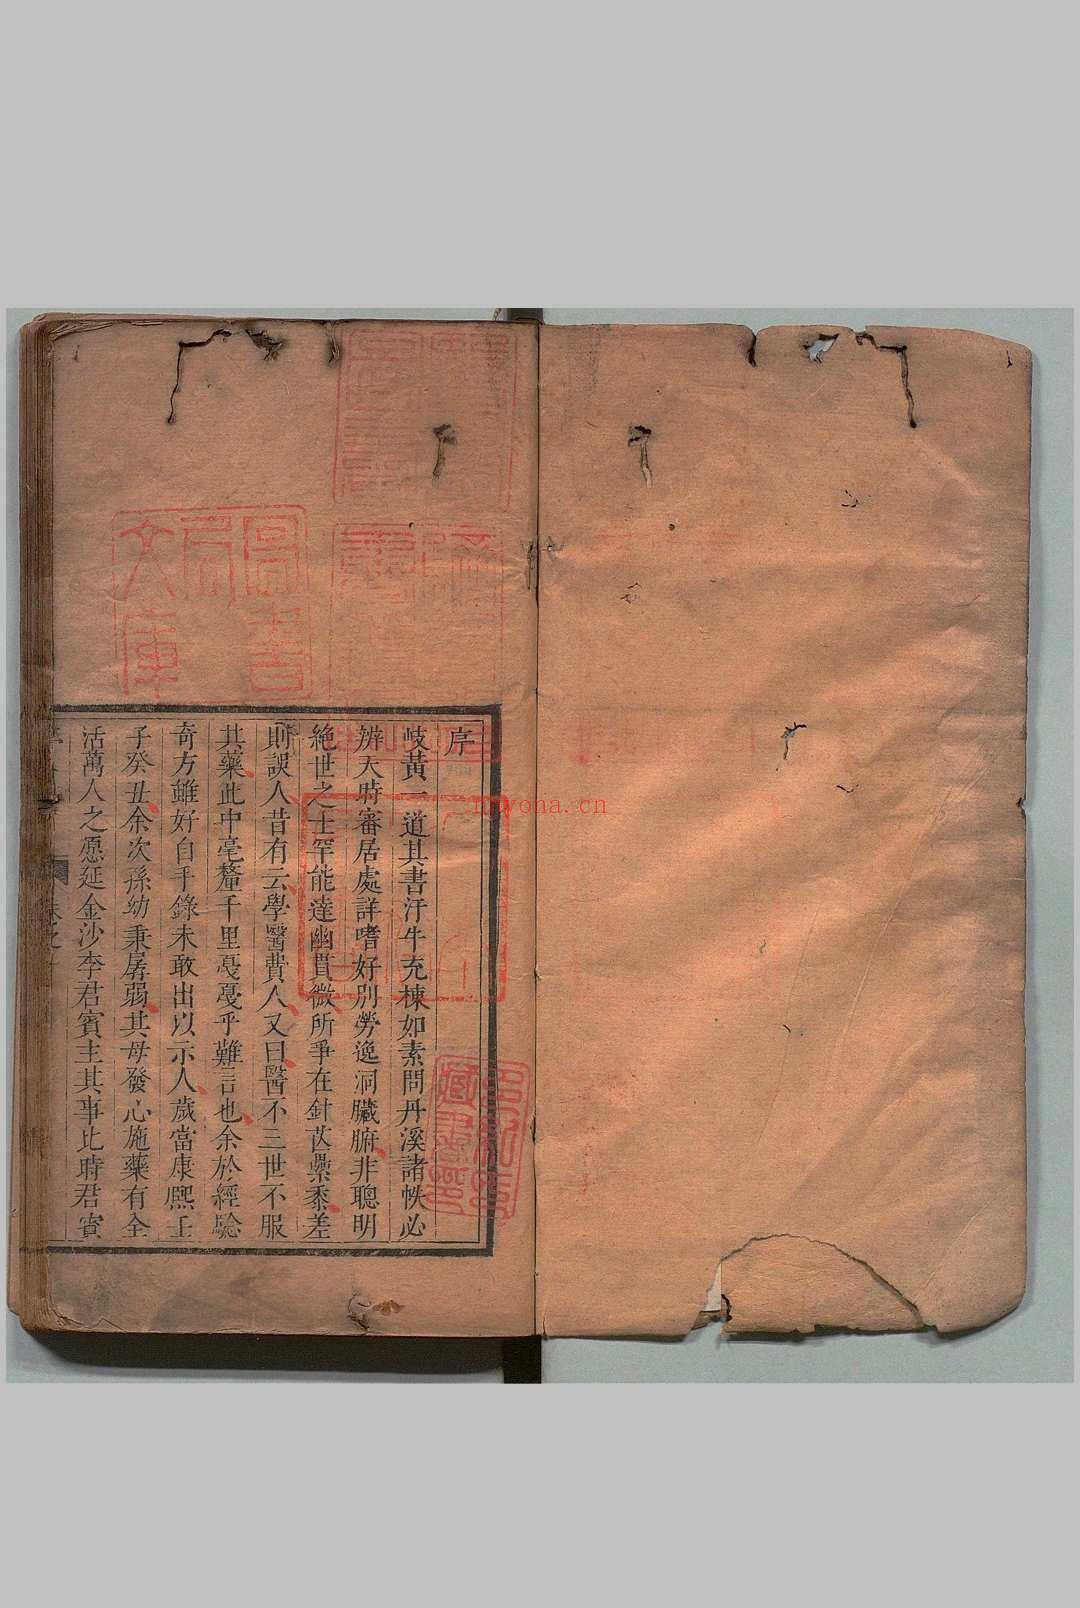 序
岐黃一道其書汗牛充棟如素問丹溪諸帙必
辨天時審居處詳嗜好別勞逸洞臟腑非聰明
絕世之士罕能達幽貫微所爭在針芥黍差
則誤人昔有云學醫費人又曰醫不三世不服
其藥此中毫釐千里戞戞乎難言也余於經驗
奇方雖好自手錄未敢出以示人歲當康熙壬
子癸丑余次孫幼秉孱弱其母發心施藥有全
活萬人之愿延金沙李君賓主其事比時君賓
圖書
局
文庫
miyona.cn